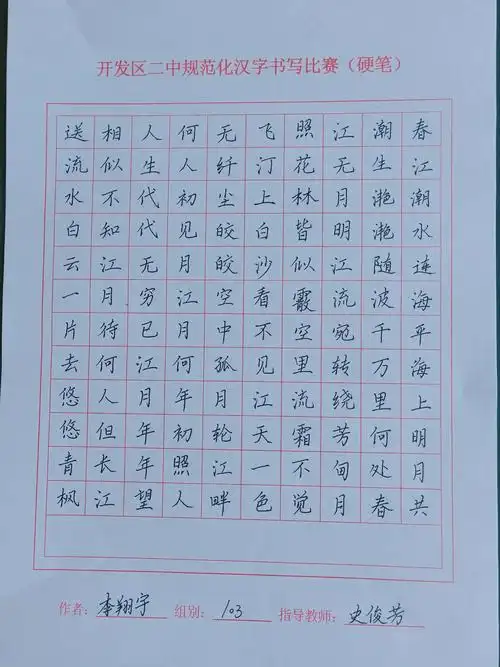 开发区二中规范化汉字书写比赛（硬笔）
春江潮水连海平海上明月共
潮生滟滟随波千万里何处春
江无月明江流宛转绕芳甸月
照花林皆似霰空里流霜不觉
飞汀上白沙看不见江天一色
无纤尘皎皎空中孤月轮江畔
何人初见月江月何年初照人
人生代代无穷已江月年年望
相似不知江月待何人但长江
送流水白云一片去悠悠青枫
作者：李翔宇 组别：103 指导教师：史俊芳